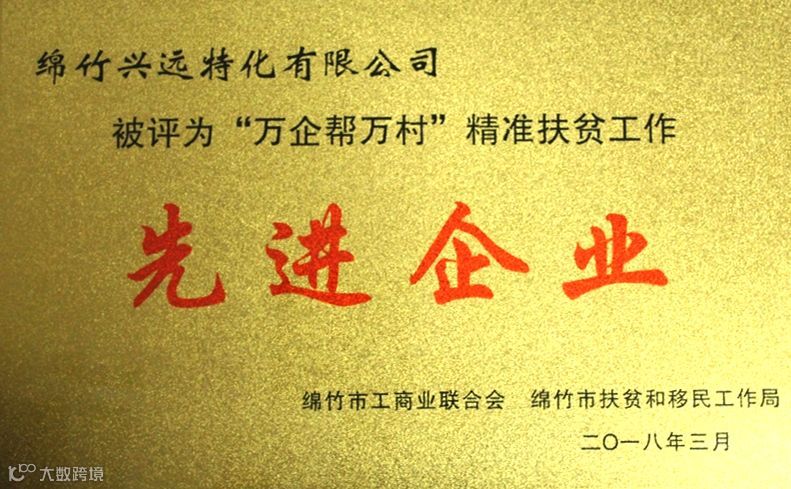 绵竹兴远特化有限公司
被评为“万企帮万村”精准扶贫工作
先进企业
绵竹市工商业联合会 绵竹市扶贫和移民工作局
二〇一八年三月
大数跨境